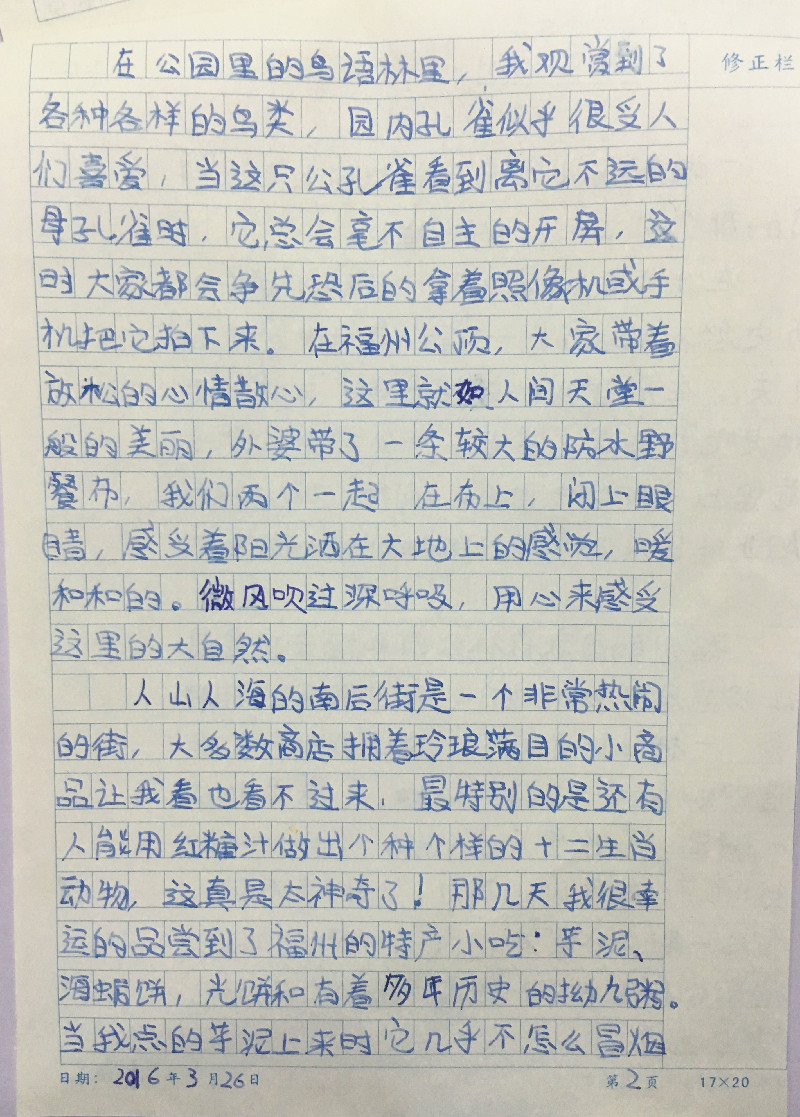 在公园里的鸟语林里，我观赏到了
修正栏
各种各样的鸟类，园内孔雀似乎很受人
们喜爱，当这只公孔雀看到离它不远的
母孔雀时，它总会毫不自主的开屏，这
时大家都会争先恐后的拿着照像机或手
机把它拍下来。在福州公顶，大家带着
放松的心情散心，这里就如人间天堂一
般的美丽，外婆带了一条较大的防水野
餐布，我们两个一起在布上，闭上眼
睛，感受着阳光洒在大地上的感觉，暖
和和的。微风吹过深呼吸，用心来感受
这里的大自然。
人山人海的南后街是一个非常热闹
的街，大多数商店拥着玲琅满目的小商
品让我看也看不过来，最特别的是还有
人能用红糖汁做出个种个样的十二生肖
动物，这真是太神奇了！那几天我很幸
运的品尝到了福州的特产小吃：芋泥、
海蛎饼，光饼和有着多年历史的拗九粥。
当我点的芋泥上来时它几乎不怎么冒烟
日期：2016年3月26日
第2页
17×20